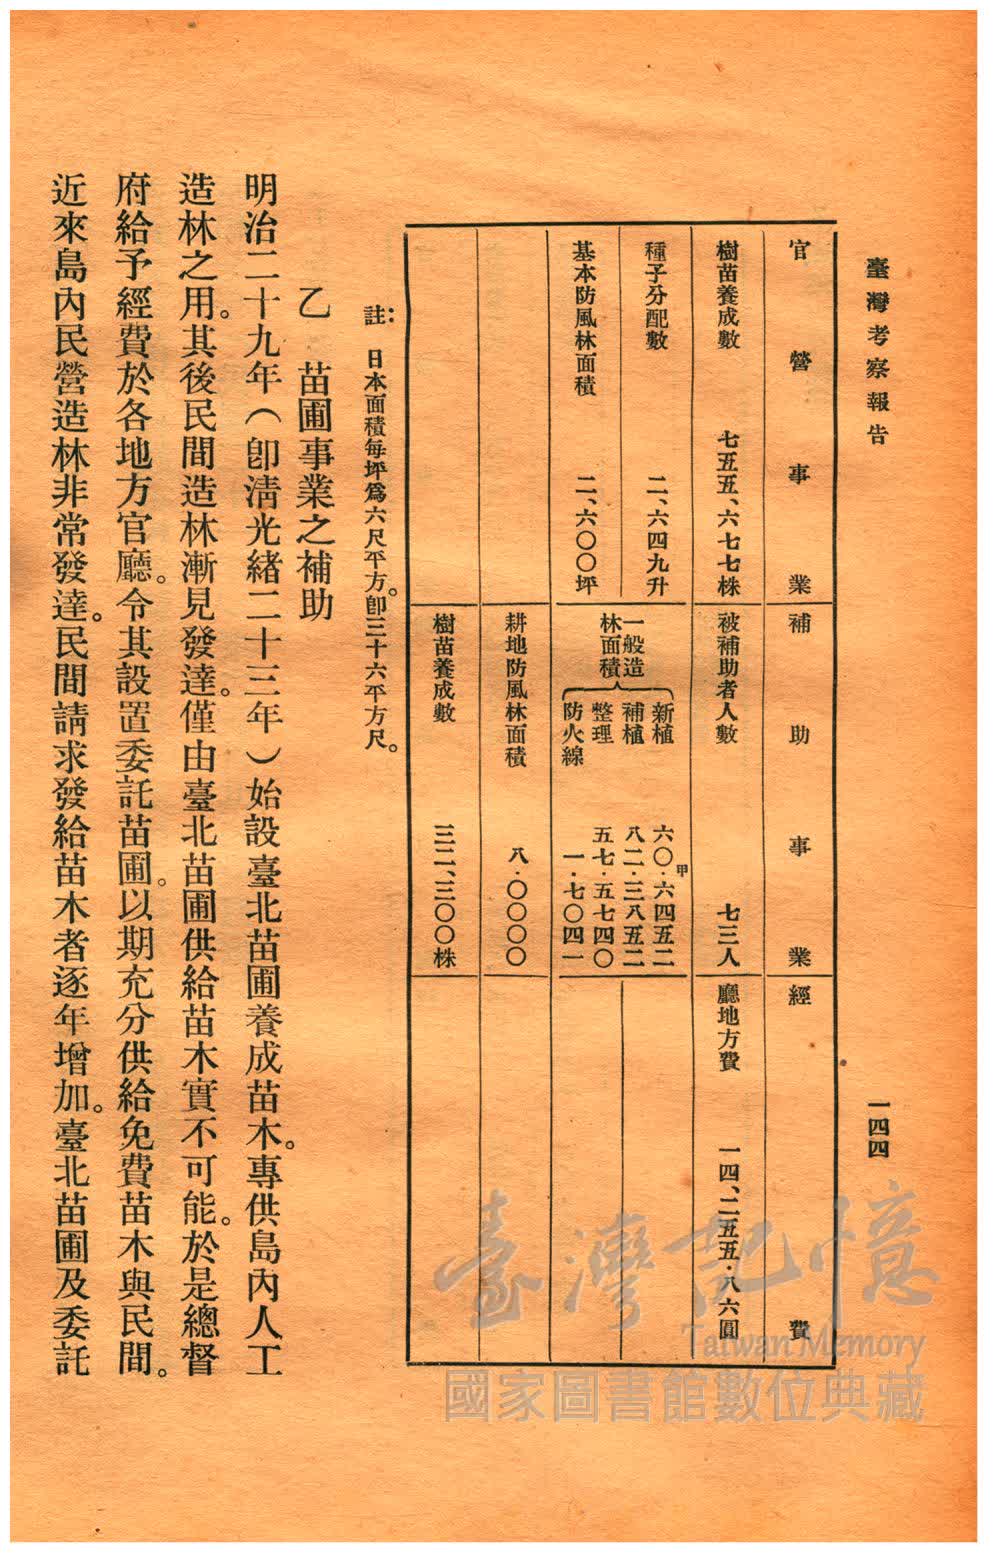 臺灣考察報告
一四四
官營事業
補助事業
經費
樹苗養成數 七五五、六七七株
被補助者人數 七三人
廳地方費 一四、二五五·八六圓
種子分配數 二、六四九升
基本防風林面積 二、六〇〇坪
一般造林面積
新植 六〇·六四五二甲
補植 八二·三八五二
整理 五七·五七四〇
防火線 一·七〇四一
耕地防風林面積 八·〇〇〇〇
樹苗養成數 三二、三〇〇株
註：日本面積每坪爲六尺平方。卽三十六平方尺。
乙 苗圃事業之補助
明治二十九年（卽清光緒二十三年）始設臺北苗圃養成苗木。專供島內人工
造林之用。其後民間造林漸見發達。僅由臺北苗圃供給苗木實不可能。於是總督
府給予經費於各地方官廳。令其設置委託苗圃。以期充分供給免費苗木與民間。
近來島內民營造林非常發達。民間請求發給苗木者逐年增加。臺北苗圃及委託
臺灣記憶
Taiwan Memory
國家圖書館數位典藏